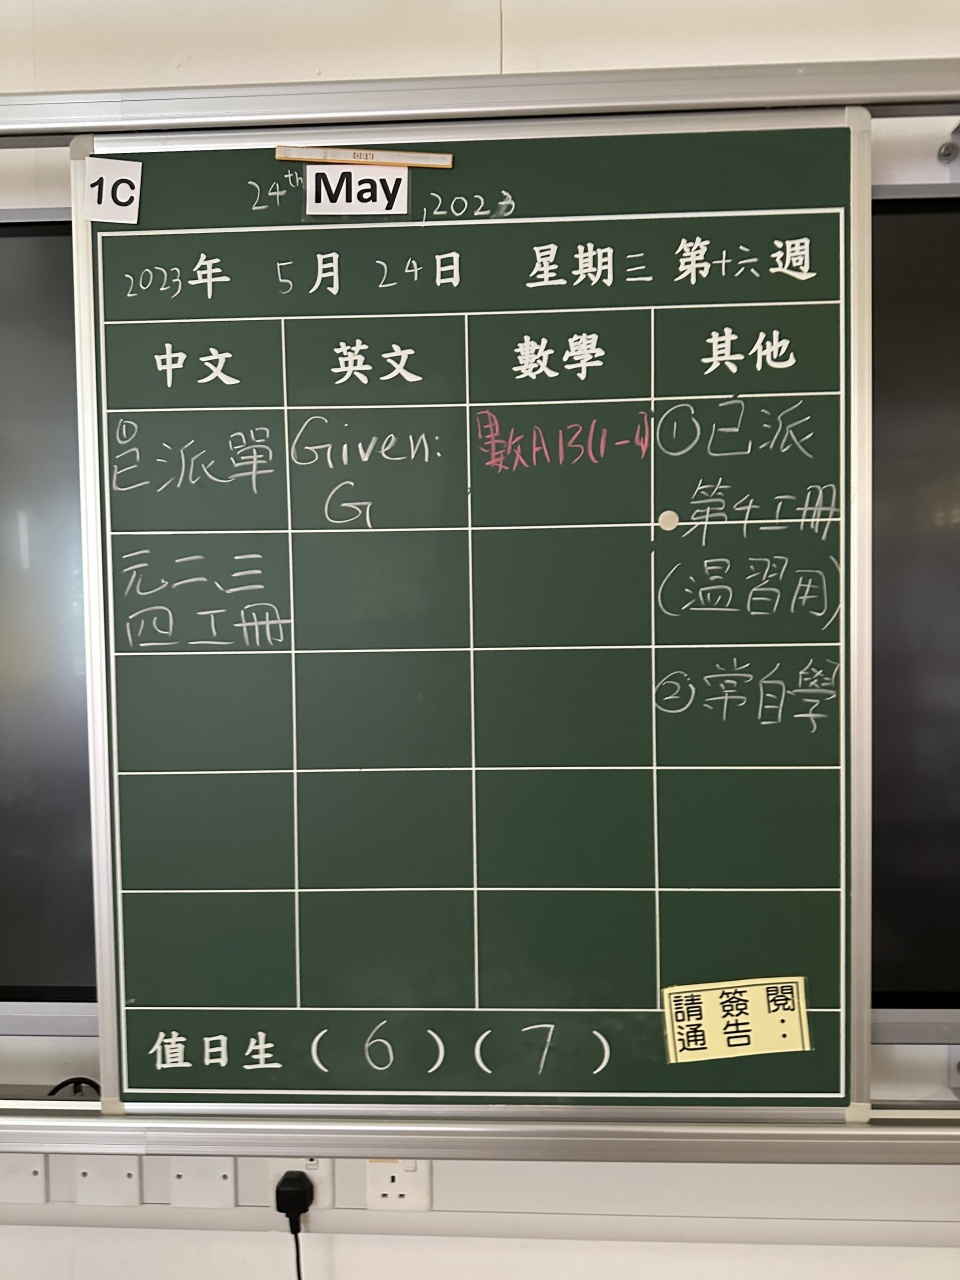 1C
24th May ,2023
2023年 5月 24日 星期三 第十六週
中文 英文 數學 其他
① 已派單
Given:
G
數A13(1-4)
①已派
第4工冊
(温習用)
元二、三
四工冊
②常自學
請簽閱
通告:
值日生(6)(7)